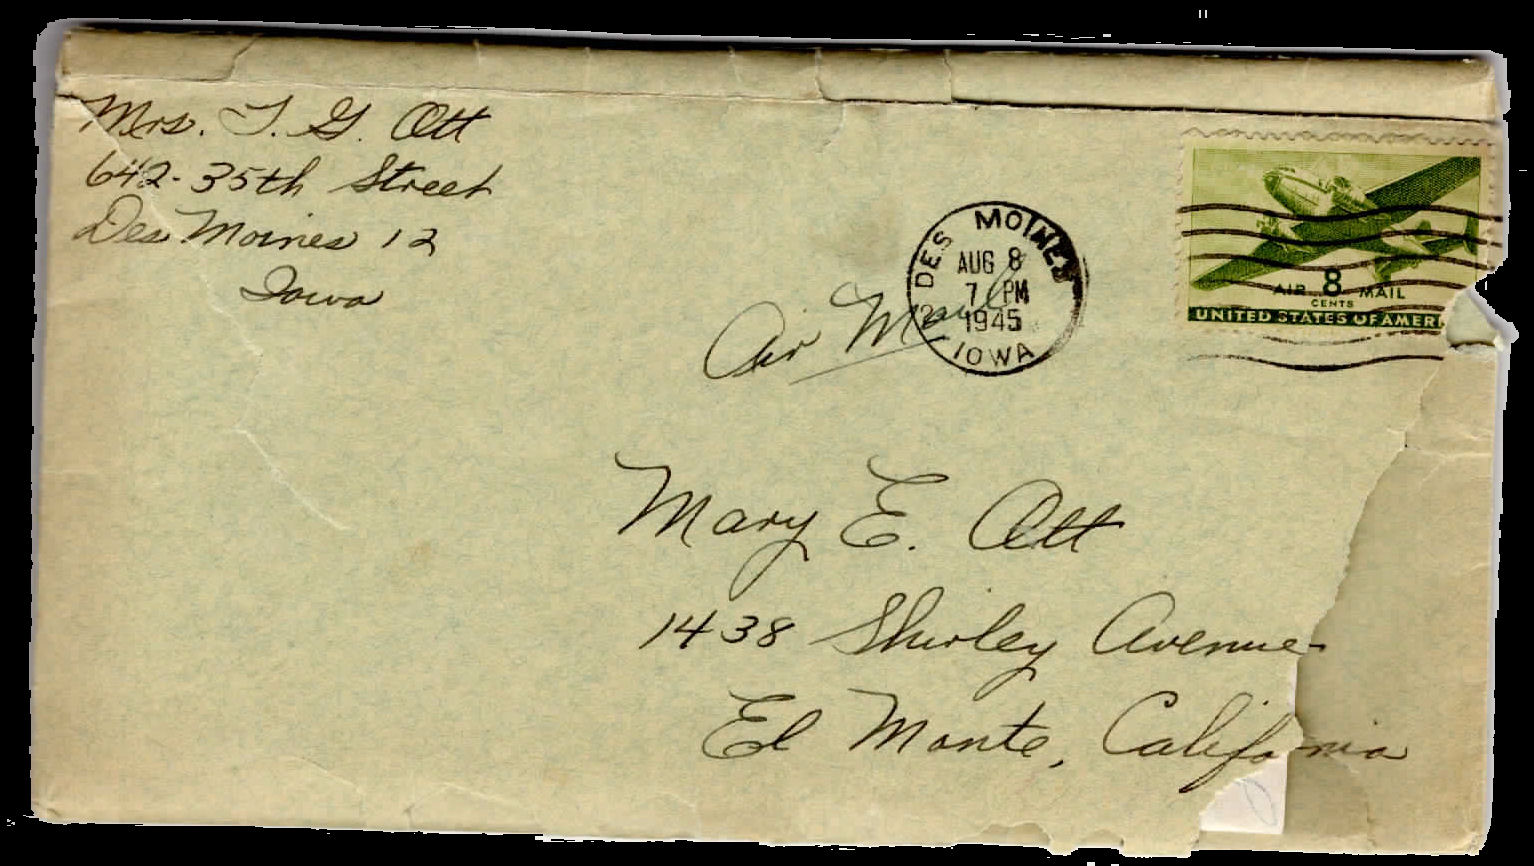 Mrs. T. G. Ott
642-35th Street
Des Moines 12
Iowa
DES MOINES
AUG 8
7 PM
1945
IOWA
Air Mail
AIR 8 MAIL
CENTS
UNITED STATES OF AMERI
Mary E. Ott
1438 Shirley Avenue
El Monte, California